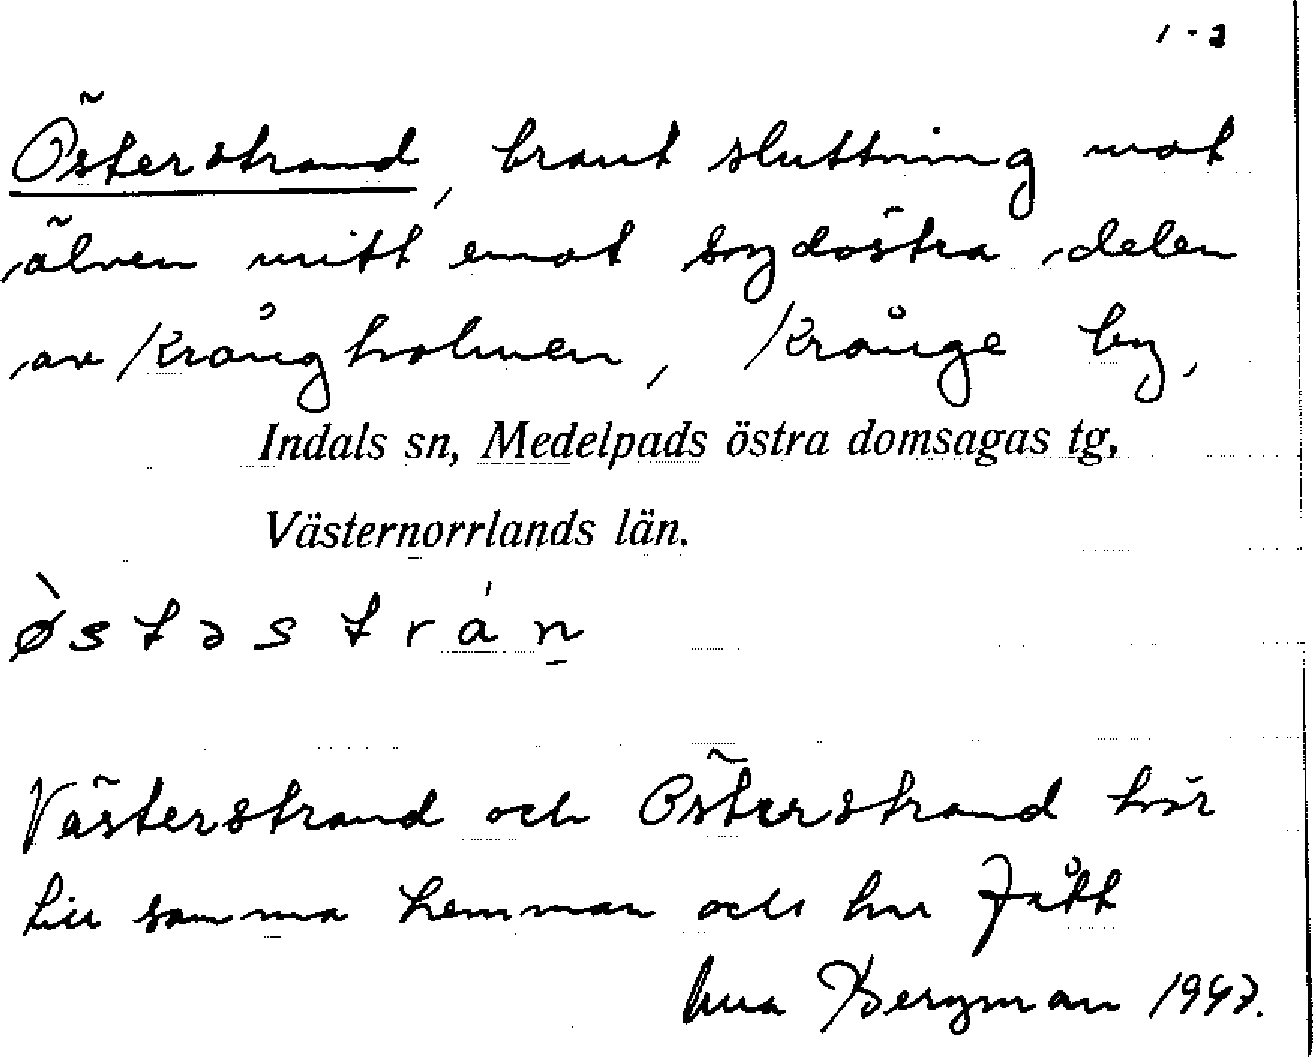 1-2
Österstrand, brant sluttning mot
älven mitt emot sydöstra delen
av Krångholmen, Krånge by,
Indals sn, Medelpads östra domsagas tg,
Västernorrlands län.
ø̀stəstrán
Västerstrand och Österstrand hör
till samma hemman och har fått
Bergman 1947.